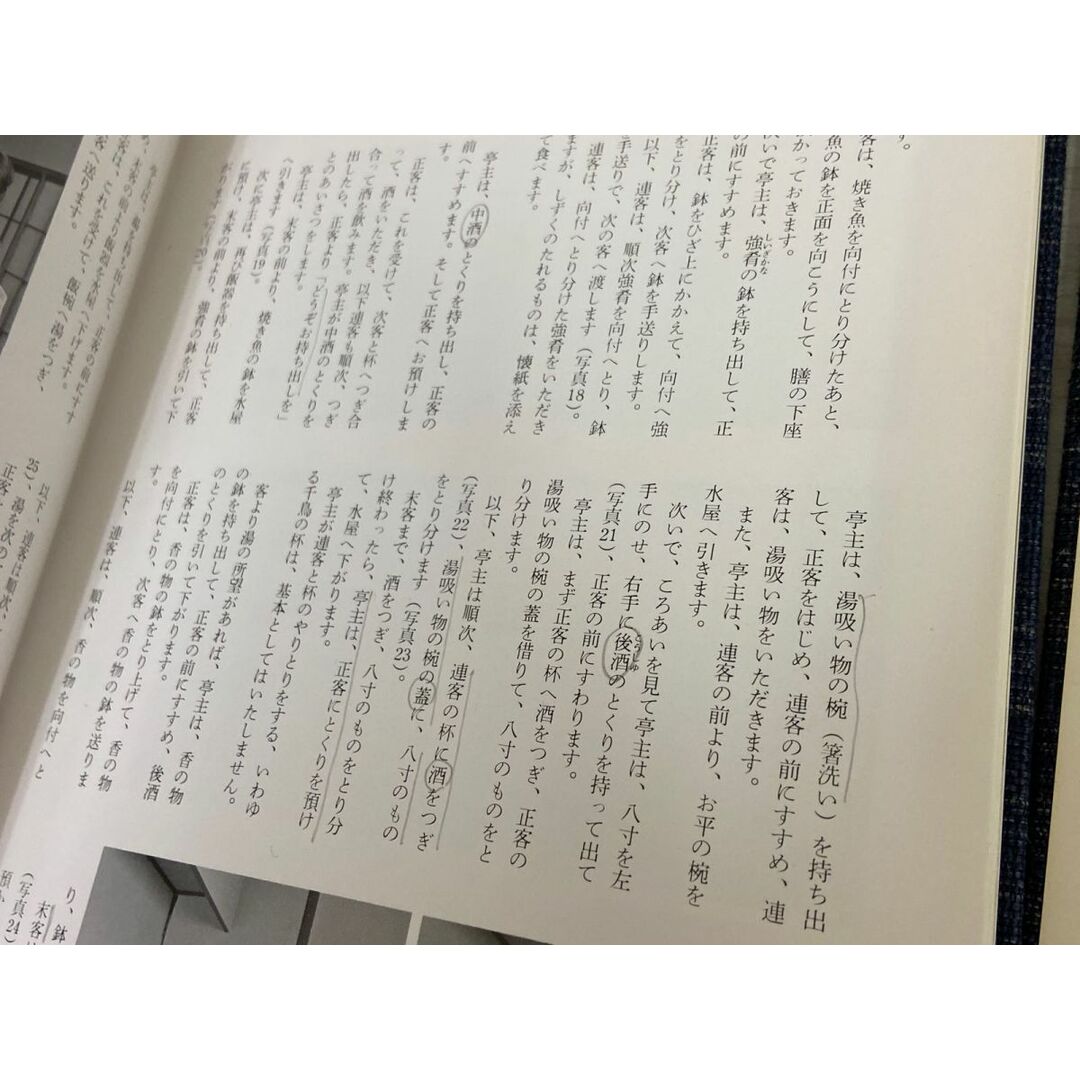 す。
客は、焼き魚を向付にとり分けたあと、
魚の鉢を正面を向こうにして、膳の下座
かっておきます。
いで亭主は、強肴の鉢を持ち出して、正
しいざかな
の前にすすめます。
正客は、鉢をひざ上にかかえて、向付へ強
をとり分け、次客へ鉢を手送りします。
以下、連客は、順次強肴を向付へとり、鉢
手送りで、次の客へ渡します（写真18）。
連客は、向付へとり分けた強肴をいただき
ますが、しずくのたれるものは、懐紙を添え
て食べます。
亭主は、中酒のとくりを持ち出し、正客の
前へすすめます。そして正客へお預けしま
正客は、これを受けて、次客と杯へつぎ合
って、酒をいただき、以下連客も順次、つぎ
合って酒を飲みます。亭主が中酒のとくりを
出したら、正客より「どうぞお持ち出しを」
とのあいさつをします。
亭主は、末客の前より、焼き魚の鉢を水屋
へ引きます（写真19）。
次に亭主は、再び飯器を持ち出して、正客
に預け、末客の前より、強肴の鉢を引いて下
がります（写真20）。
亭主は、湯吸い物の椀（箸洗い）を持ち出
して、正客をはじめ、連客の前にすすめ、連
客は、湯吸い物をいただきます。
また、亭主は、連客の前より、お平の椀を
水屋へ引きます。
次いで、ころあいを見て亭主は、八寸を左
手にのせ、右手に後酒のとくりを持って出て
とうしゅ
（写真21）、正客の前にすわります。
亭主は、まず正客の杯へ酒をつぎ、正客の
湯吸い物の椀の蓋を借りて、八寸のものをと
り分けます。
以下、亭主は順次、連客の杯に酒をつぎ
（写真22）、湯吸い物の椀の蓋に、八寸のもの
をとり分けます（写真23）。
末客まで、酒をつぎ、八寸のものをとり分
け終わったら、亭主は、正客にとくりを預け
て、水屋へ下がります。
亭主が連客と杯のやりとりをする、いわゆ
る千鳥の杯は、基本としてはいたしません。
客より湯の所望があれば、亭主は、香の物
の鉢を持ち出して、正客の前にすすめ、後酒
のとくりを引いて下がります。
正客は、香の物の鉢をとり上げて、香の物
を向付にとり、次客へ香の物の鉢を送りま
す。
以下、連客は、順次、香の物を向付へと
り、鉢
末客は
（写真24）
客は、これを受けて、飯椀へ湯をつぎ、
客へ送ります。
以下、連客は順次、
25）、湯を次の